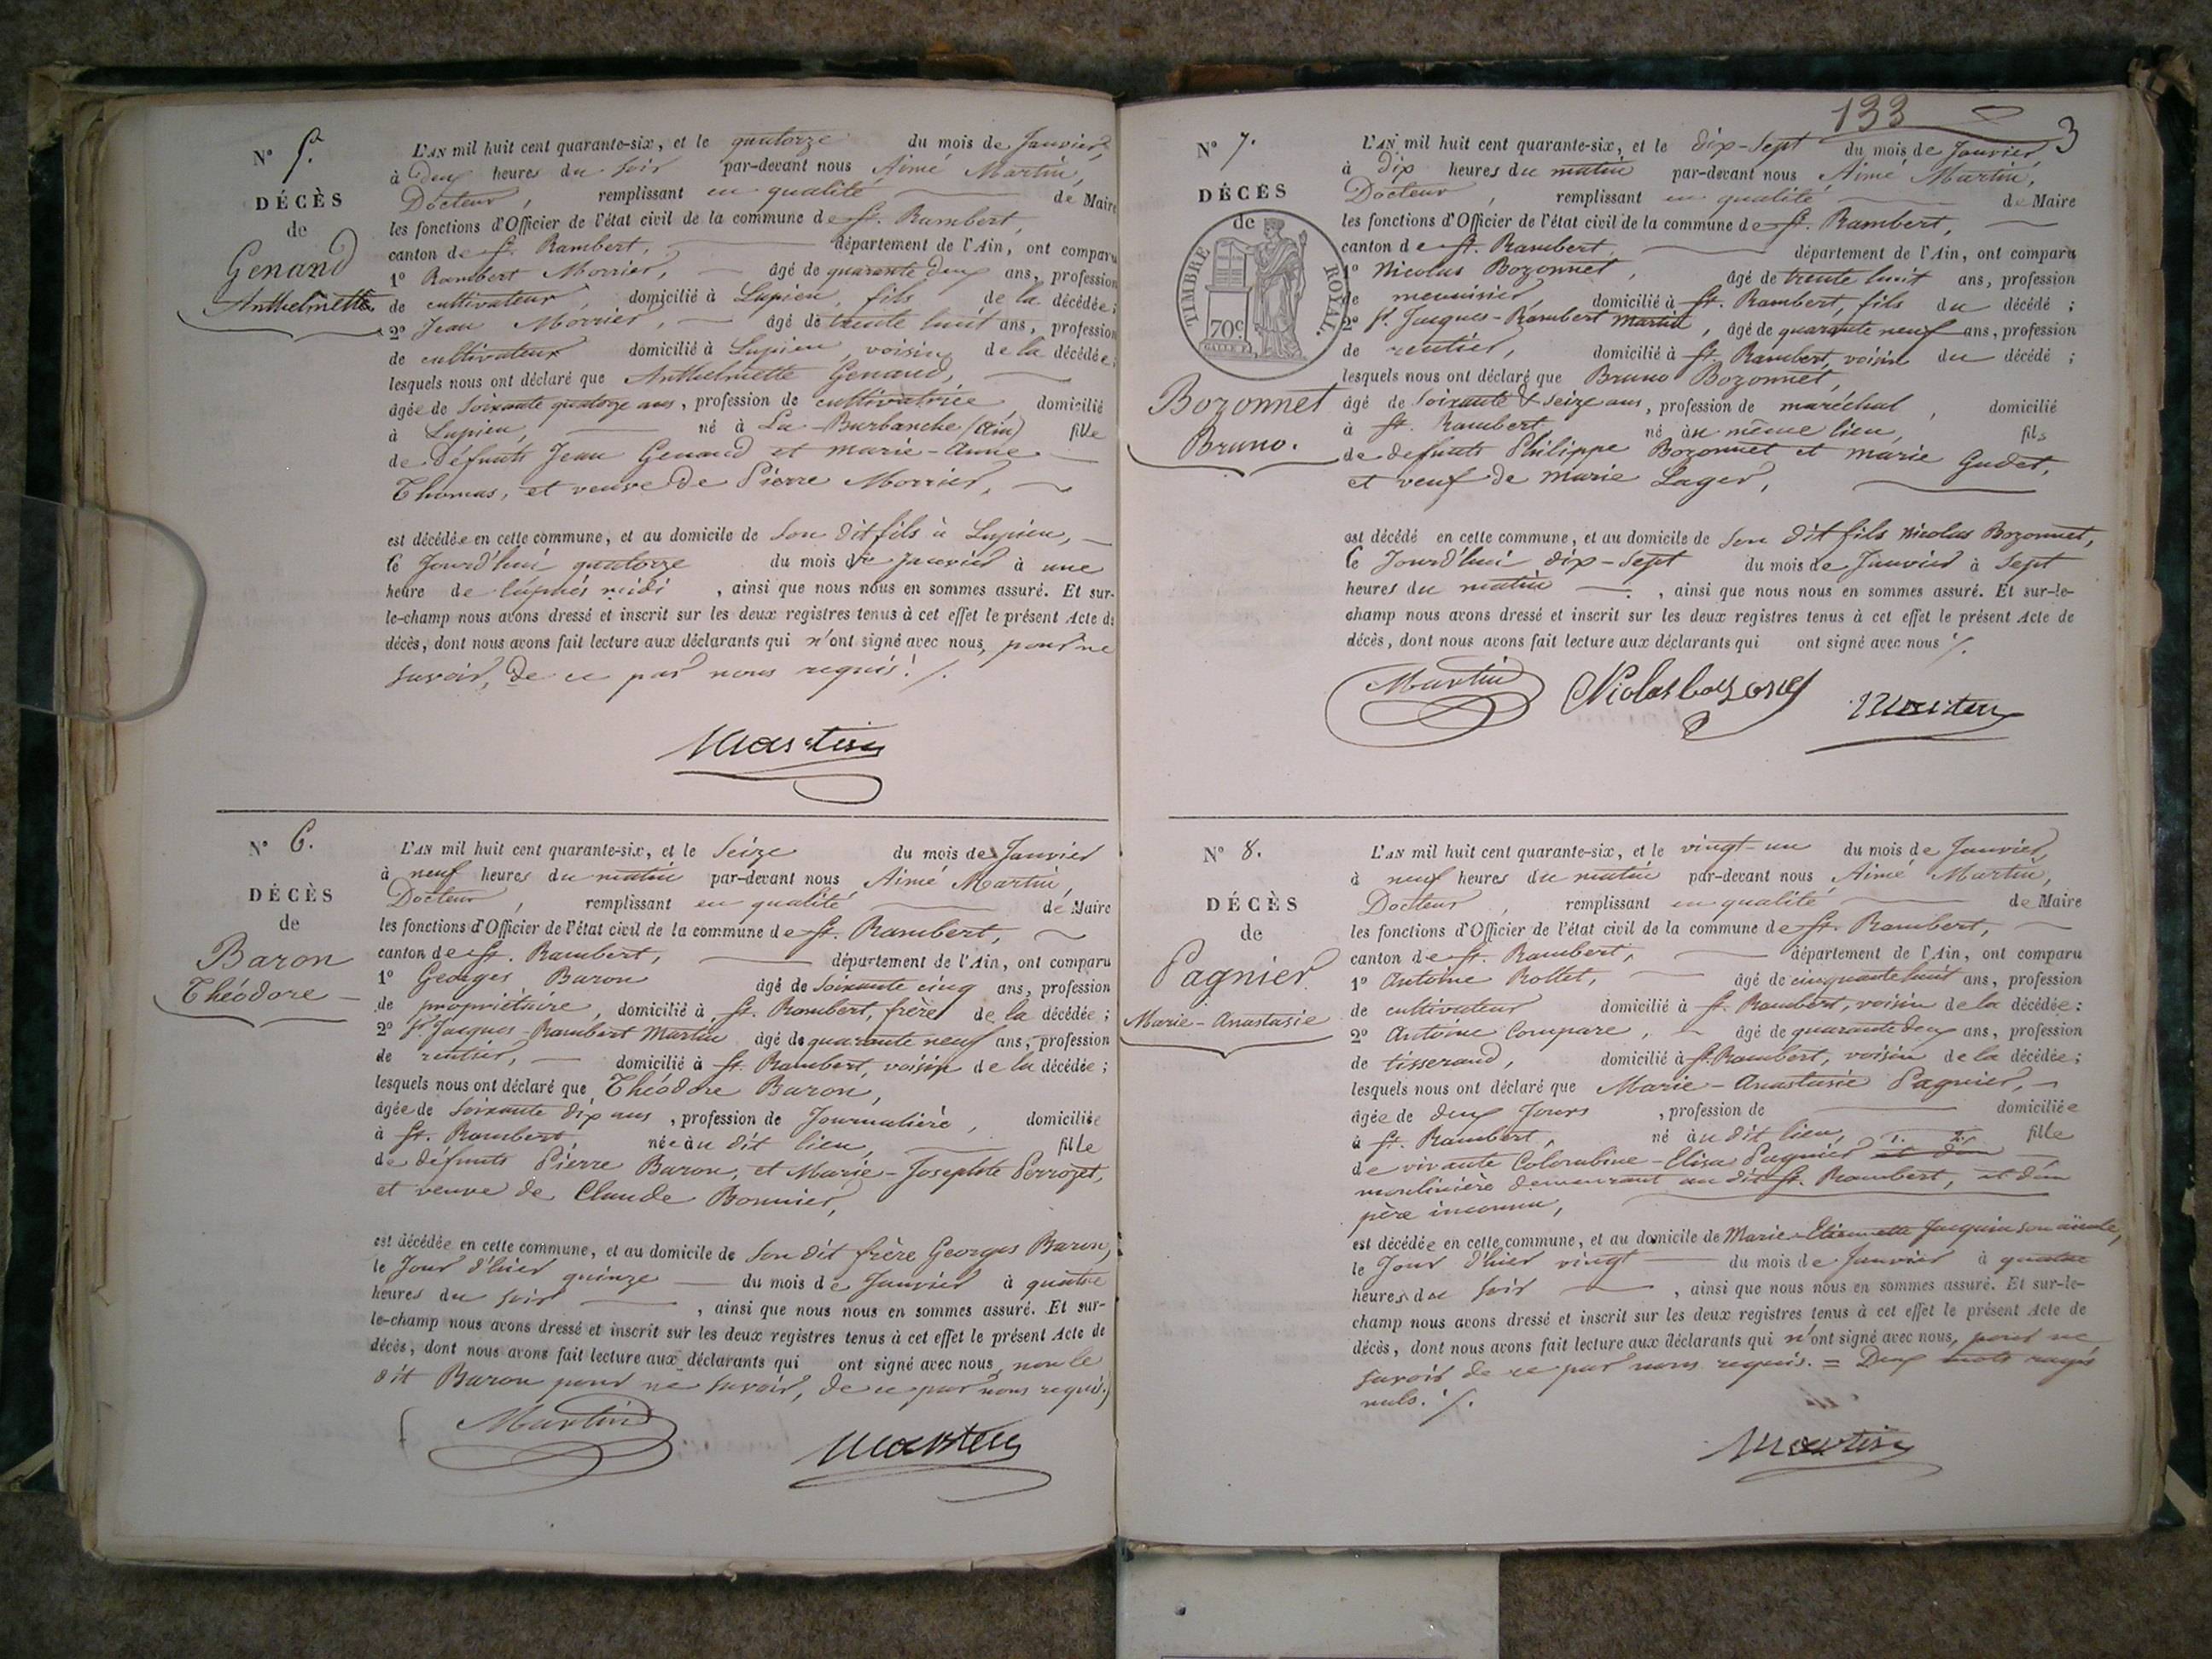 N° 5.
DÉCÈS
de
Genand
Anthelmette
L'AN mil huit cent quarante-six, et le quatorze du mois de Janvier,
à Deux heures du soir par-devant nous Aimé Martin,
Docteur, remplissant en qualité de Maire
les fonctions d'Officier de l'état civil de la commune de St. Rambert,
canton de St. Rambert, département de l'Ain, ont comparu
1° Rambert Morrier, âgé de quarante deux ans, profession
de cultivateur, domicilié à Lupieu, fils de la décédée;
2° Jean Morrier, âgé de trente huit ans, profession
de cultivateur domicilié à Lupieu, voisin de la décédée;
lesquels nous ont déclaré que Anthelmette Genand,
âgée de soixante quatorze ans, profession de cultivatrice, domicilié
à Lupieu, né à La Burbanche (Ain) fille
de défunts Jean Genand et Marie-Anne
Thomas, et veuve de Pierre Morrier,
est décédée en cette commune, et au domicile de son dit fils à Lupieu,
le Jourd'hui quatorze du mois de Janvier à une
heure de l'après midi, ainsi que nous nous en sommes assuré. Et sur-
le-champ nous avons dressé et inscrit sur les deux registres tenus à cet effet le présent Acte de
décès, dont nous avons fait lecture aux déclarants qui n'ont signé avec nous, pour ne
savoir, de ce par nous requis ./.
Martin
N° 6.
DÉCÈS
de
Baron
Théodore
L'AN mil huit cent quarante-six, et le Seize du mois de Janvier
à neuf heures du matin par-devant nous Aimé Martin,
Docteur, remplissant en qualité de Maire
les fonctions d'Officier de l'état civil de la commune de St. Rambert,
canton de St. Rambert, département de l'Ain, ont comparu
1° Georges Baron âgé de soixante cinq ans, profession
de propriétaire, domicilié à St. Rambert, frère de la décédée;
2° St. Jacques-Rambert Martin âgé de quarante neuf ans, profession
de rentier, domicilié à St. Rambert, voisin de la décédée;
lesquels nous ont déclaré que Théodore Baron,
âgée de soixante dix ans, profession de Journalière, domiciliée
à St. Rambert, née au dit lieu, fille
de défunts Pierre Baron, et Marie-Josephte Perrozet,
et veuve de Claude Bonnier,
est décédée en cette commune, et au domicile de son dit frère Georges Baron,
le Jour d'hier quinze du mois de Janvier à quatre
heures du soir, ainsi que nous nous en sommes assuré. Et sur-
le-champ nous avons dressé et inscrit sur les deux registres tenus à cet effet le présent Acte de
décès, dont nous avons fait lecture aux déclarants qui ont signé avec nous, non le
dit Baron pour ne savoir, de ce par nous requis./
Martin Martin
133
3
N° 7.
DÉCÈS
de
TIMBRE ROYAL.
70c
Bozonnet
Bruno.
L'AN mil huit cent quarante-six, et le dix-sept du mois de Janvier,
à Dix heures du matin par-devant nous Aimé Martin,
Docteur, remplissant en qualité de Maire
les fonctions d'Officier de l'état civil de la commune de St. Rambert,
canton de St. Rambert, département de l'Ain, ont comparu
1° Nicolas Bozonnet, âgé de trente huit ans, profession
de menuisier, domicilié à St. Rambert, fils du décédé;
2° St. Jacques-Rambert Martin, âgé de quarante neuf ans, profession
de rentier, domicilié à St. Rambert, voisin du décédé;
lesquels nous ont déclaré que Bruno Bozonnet,
âgé de soixante & seize ans, profession de maréchal, domicilié
à St. Rambert, né au même lieu, fils
de defunts Philippe Bozonnet et Marie Gudet,
et veuf de Marie Lager,
est décédé en cette commune, et au domicile de son dit fils Nicolas Bozonnet,
le Jourd'hui dix-sept du mois de Janvier à sept
heures du matin, ainsi que nous nous en sommes assuré. Et sur-le-
champ nous avons dressé et inscrit sur les deux registres tenus à cet effet le présent Acte de
décès, dont nous avons fait lecture aux déclarants qui ont signé avec nous ./.
Martin Nicolas bozonet Martin
N° 8.
DÉCÈS
de
Pagnier
Marie-Anastasie
L'AN mil huit cent quarante-six, et le vingt-un du mois de Janvier,
à neuf heures du matin par-devant nous Aimé Martin,
Docteur, remplissant en qualité de Maire
les fonctions d'Officier de l'état civil de la commune de St. Rambert,
canton de St. Rambert, département de l'Ain, ont comparu
1° Antoine Rollet, âgé de cinquante huit ans, profession
de cultivateur domicilié à St. Rambert, voisin de la décédée:
2° Antoine Compare, âgé de quarante deux ans, profession
de tisserand, domicilié à St. Rambert, voisin de la décédée;
lesquels nous ont déclaré que Marie-Anastasie Pagnier,
âgée de deux Jours, profession de domiciliée
à St. Rambert, né au dit lieu, fille
de vivante Colombine-Elisa Pagnier et d'un
moulinière demeurant au dit St. Rambert, et d'un
père inconnu,
est décédée en cette commune, et au domicile de Marie-Etiennette Jacquin son aïeule,
le Jour d'hier vingt du mois de Janvier à quatre
heures du soir, ainsi que nous nous en sommes assuré. Et sur-le-
champ nous avons dressé et inscrit sur les deux registres tenus à cet effet le présent Acte de
décès, dont nous avons fait lecture aux déclarants qui n'ont signé avec nous, pour ne
savoir de ce par nous requis. = Deux mots rayés
nuls. /.
Martin